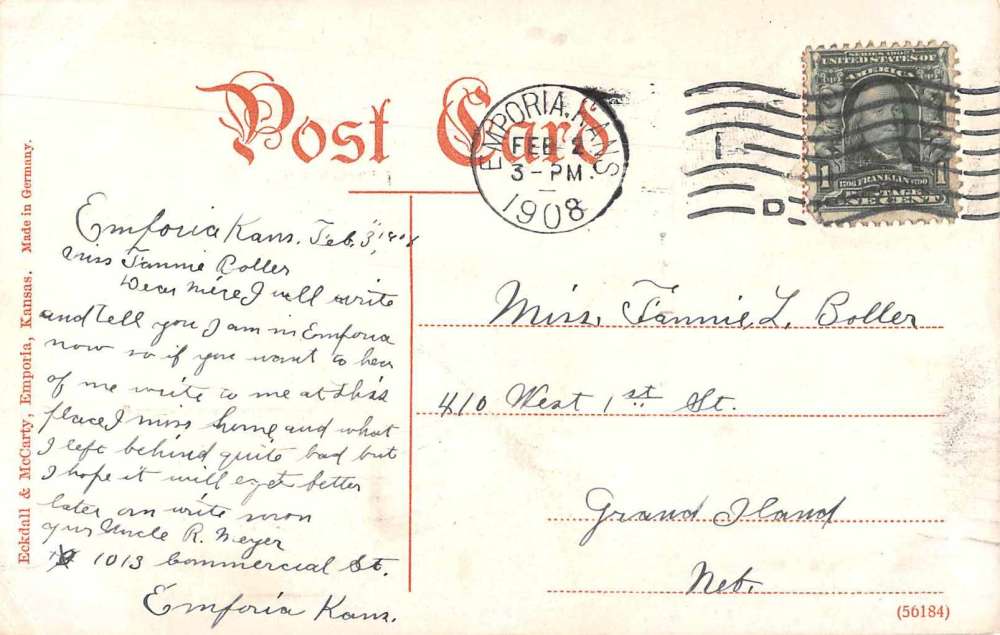 Post Card
EMPORIA, KANS
FEB 2
3-PM
1908
D
SERIES 1902
UNITED STATES OF
AMERICA
1 1706 FRANKLIN 1790 1
POSTAGE
ONE CENT
Emforia Kans. Feb. 3"
Miss Fannie Boller
Dear niece I will write
and tell you I am in Emforia
now so if you want to hear
of me write to me at this
place I miss home and what
I left behind quite bad but
I hope it will get better
later on write soon
your Uncle R. Meyer
1013 Commercial St.
Emforia Kans.
Miss, Fannie, L, Boller
410 West 1st St.
Grand Iland
Neb.
Eckdall & McCarty, Emporia, Kansas. Made in Germany.
(56184)